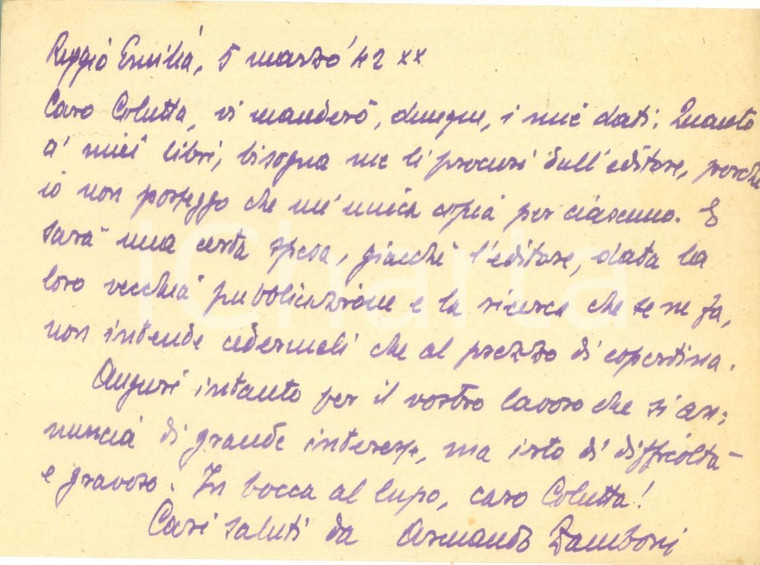 Reggio Emilia, 5 marzo '42 XX
Caro Colutta, vi manderò, dunque, i miei dati: Quanto
a' miei libri, bisogna me li procuri dall'editore, perché
io non posseggo che un'unica copia per ciascuno. E
sarà una certa spesa, giacché l'editore, data la
loro vecchia pubblicazione e la ricerca che se ne fa,
non intende cedermeli che al prezzo di copertina.
Auguri intanto per il vostro lavoro che si an-
nuncia di grande interesse, ma irto di difficoltà
e gravoso. In bocca al lupo, caro Colutta!
Cari saluti da Armando Zamboni
iCharta